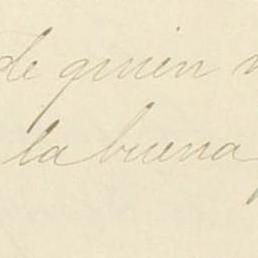 de quien
la buena